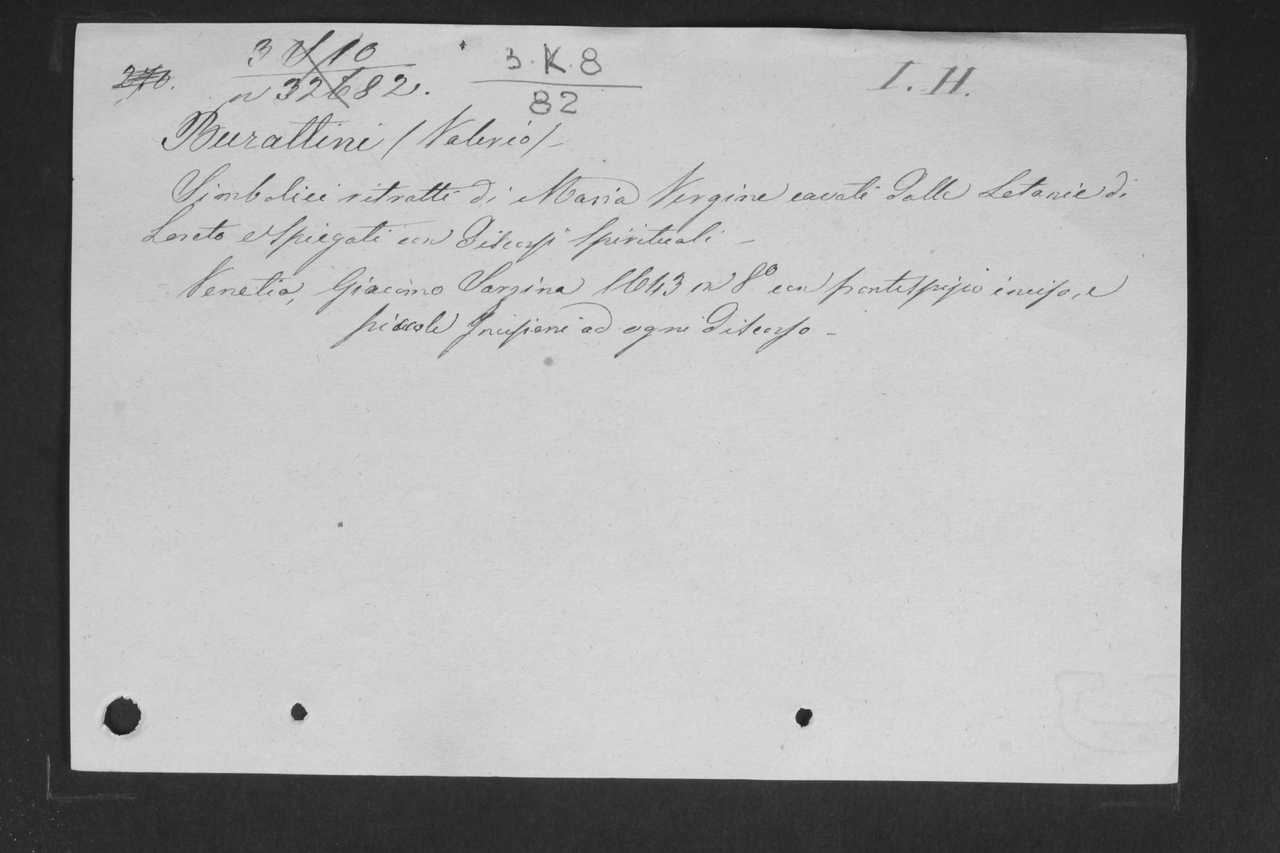 3. K. 8
82
I. H.
n 32682.
Burattini (Valerio) -
Simbolici ritratti di Maria Vergine cavati dalle Letanie di
Loreto e spiegati con Discorsi Spirituali -
Venetia, Giacomo Sarzina 1643 in 8º con frontispizio inciso, e
piccole Incisioni ad ogni Discorso -